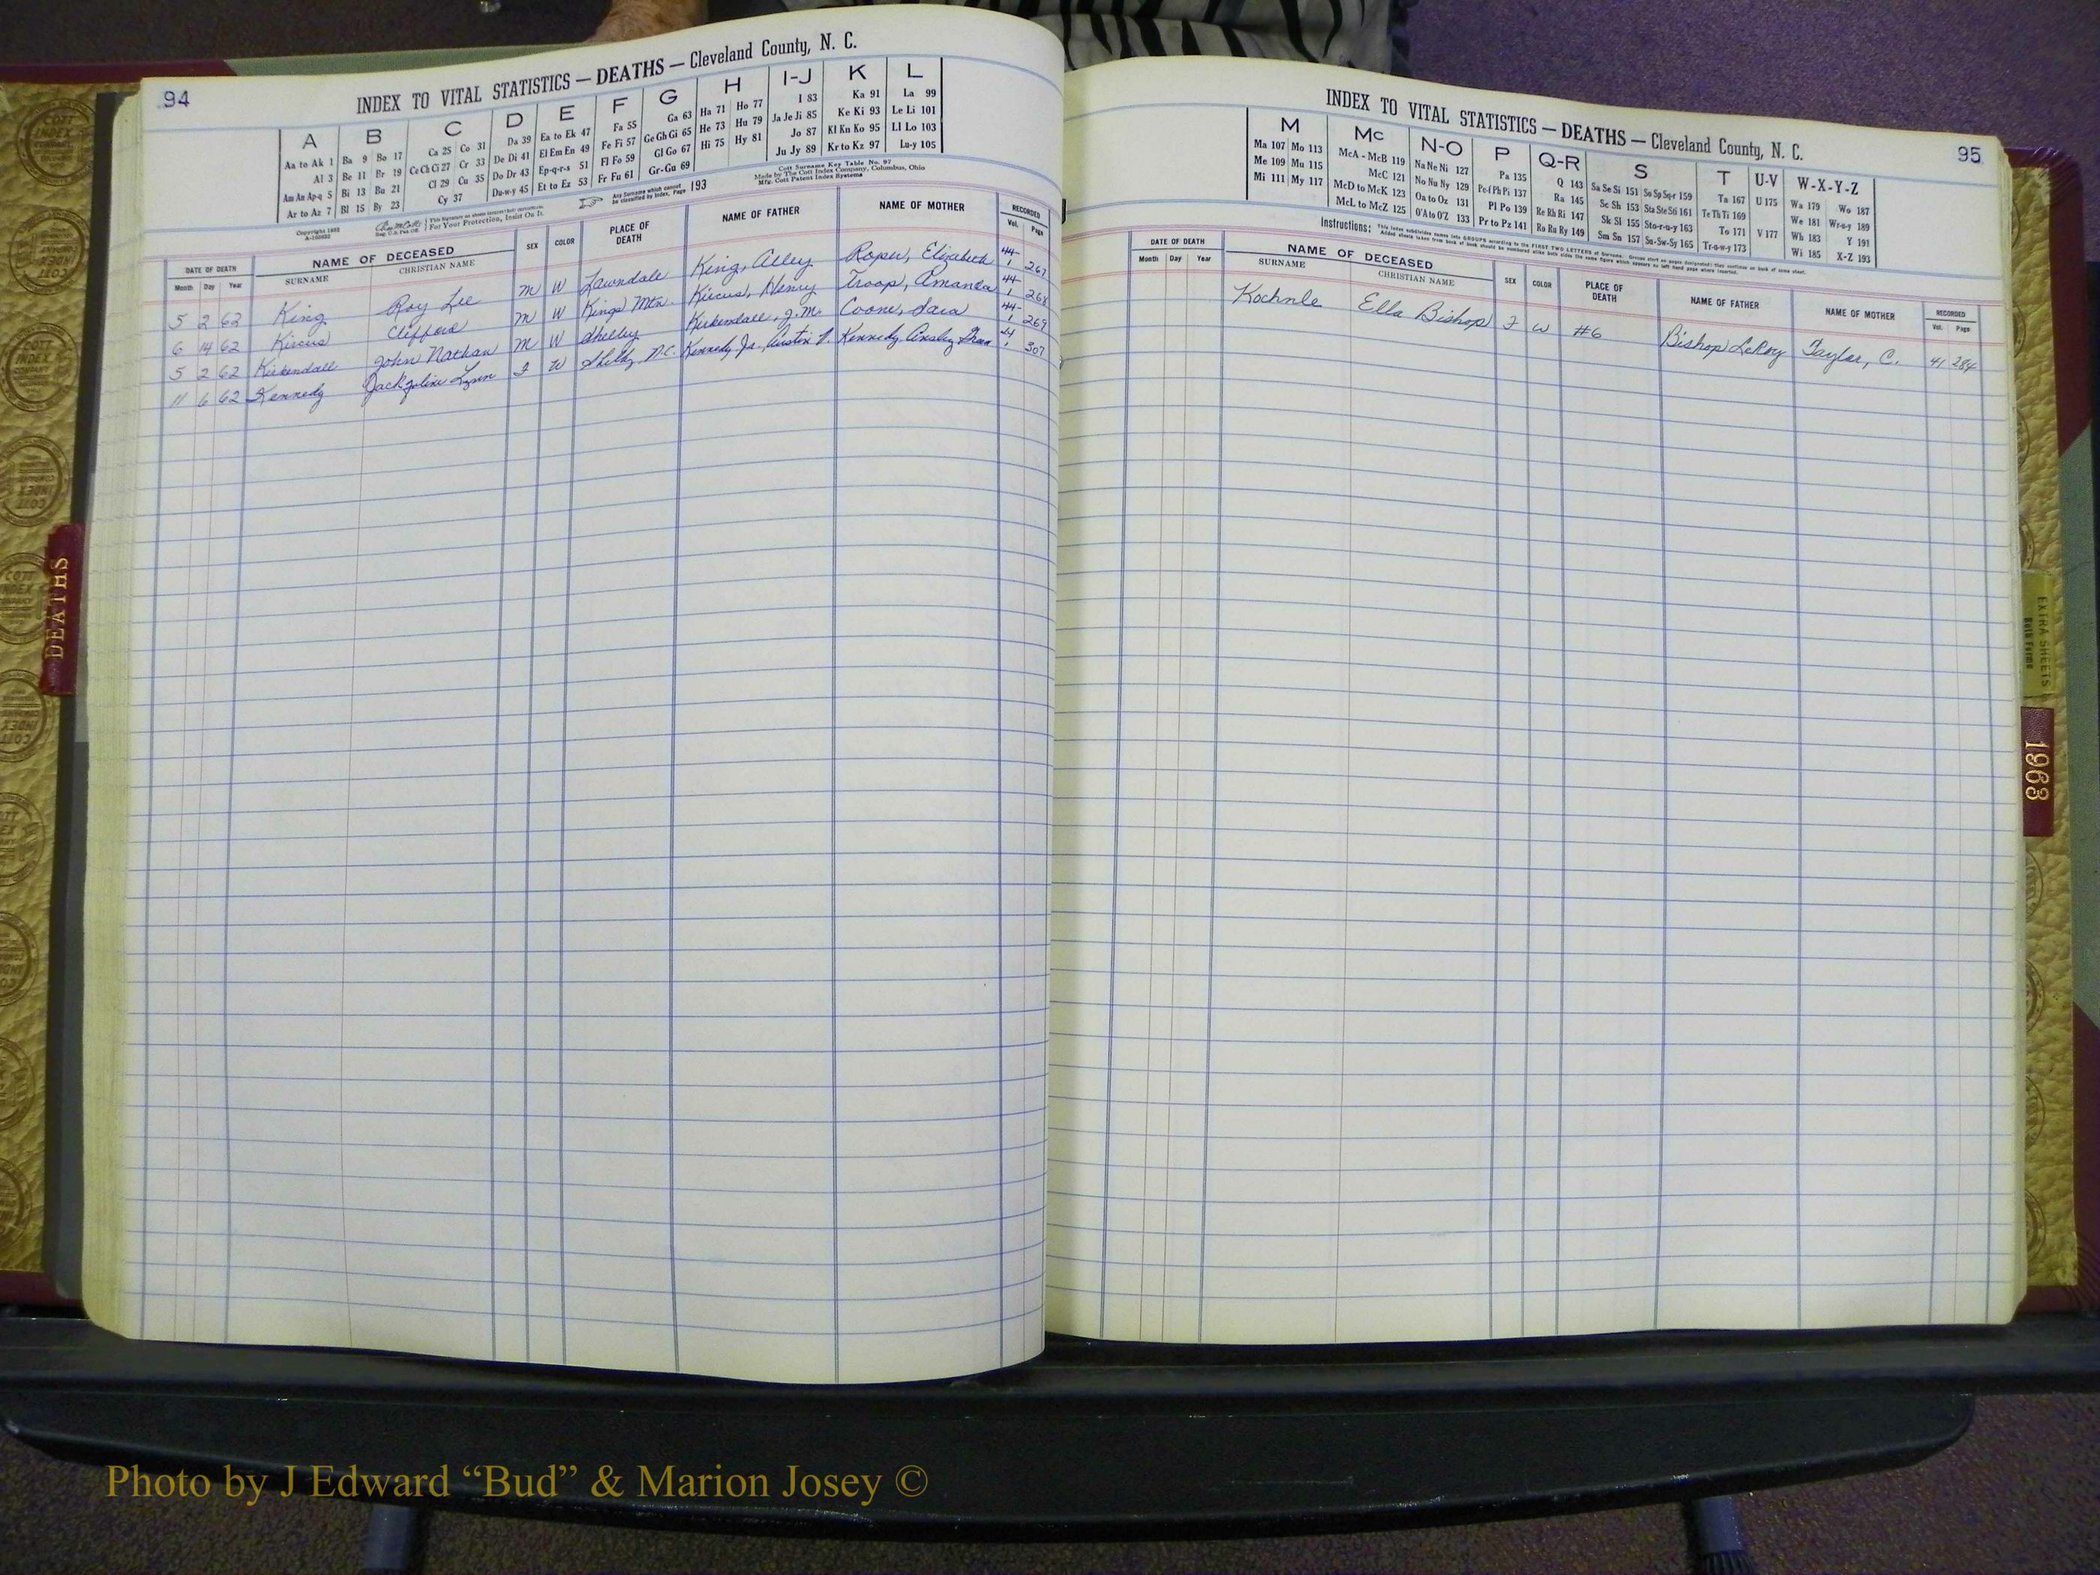 94
INDEX TO VITAL STATISTICS — DEATHS — Cleveland County, N. C.
A B C D E F G H I-J K L
Aa to Ak 1 Ba 9 Bo 17 Ca 25 Co 31 Da 39 Ea to Ek 47 Fa 55 Ga 63 Ha 71 Ho 77 I 83 Ka 91 La 99
Al 3 Be 11 Br 19 Ce Ch Ci 27 Cr 33 De Di 41 El Em En 49 Fe Fi 57 Ge Gh Gi 65 He 73 Hu 79 Ja Je Ji 85 Ke Ki 93 Le Li 101
Am An Ap-q 5 Bi 13 Bu 21 Cl 29 Cu 35 Do Dr 43 Ep-q-r-s 51 Fl Fo 59 Gl Go 67 Hi 75 Hy 81 Jo 87 Kl Kn Ko 95 Ll Lo 103
Ar to Az 7 Bl 15 By 23 Cy 37 Du-w-y 45 Et to Ez 53 Fr Fu 61 Gr-Gu 69 Ju Jy 89 Kr to Kz 97 Lu-y 105
Copyright 1932
For Your Protection, Insist On It.
Any Surname which cannot be classified by index, Page 193
Cott Surname Key Table No. 97
Made by The Cott Index Company, Columbus, Ohio
Mfg. Cott Patent Index Systems
DATE OF DEATH NAME OF DECEASED SEX COLOR PLACE OF DEATH NAME OF FATHER NAME OF MOTHER RECORDED
Month Day Year SURNAME CHRISTIAN NAME Vol. Page
5 2 62 King Roy Lee M W Lawndale King, Alley Roper, Elizabeth 44-1 267
6 14 62 Kircus Clifford M W Kings Mtn. Kircus, Henry Troop, Amanda 44-1 268
5 2 62 Kirkendall John Nathan M W Shelby Kirkendall, J. M. Coone, Sara 44-1 269
11 6 62 Kennedy Jackquline Lynn F W Shelby N.C. Kennedy Jr. Austin Kennedy 307
95
INDEX TO VITAL STATISTICS — DEATHS — Cleveland County, N. C.
M Mc N-O P Q-R S T U-V W-X-Y-Z
Ma 107 Mo 113 McA - McB 119 Na Ne Ni 127 Pa 135 Q 143 Sa Se Si 151 So Sp Sq-r 159 Ta 167 U 175 Wa 179 Wo 187
Me 109 Mu 115 McC 121 No Nu Ny 129 Pe-f Ph Pi 137 Ra 145 Sc Sh 153 Sta Ste Sti 161 Te Th Ti 169 We 181 Wr-u-y 189
Mi 111 My 117 McD to McK 123 Oa to Oz 131 Pl Po 139 Re Rh Ri 147 Sk Sl 155 Sto-r-u-y 163 To 171 V 177 Wh 183 Y 191
McL to McZ 125 O'A to O'Z 133 Pr to Pz 141 Ro Ru Ry 149 Sm Sn 157 Su-Sw-Sy 165 Tr-u-w-y 173 Wi 185 X-Z 193
Instructions:
DATE OF DEATH NAME OF DECEASED SEX COLOR PLACE OF DEATH NAME OF FATHER NAME OF MOTHER RECORDED
Month Day Year SURNAME CHRISTIAN NAME Vol. Page
Kochnle Ella Bishop F W #6 Bishop LeRoy Taylor, C. 41 284
DEATHS
EXTRA SHEETS
1963
Photo by J Edward “Bud” & Marion Josey ©